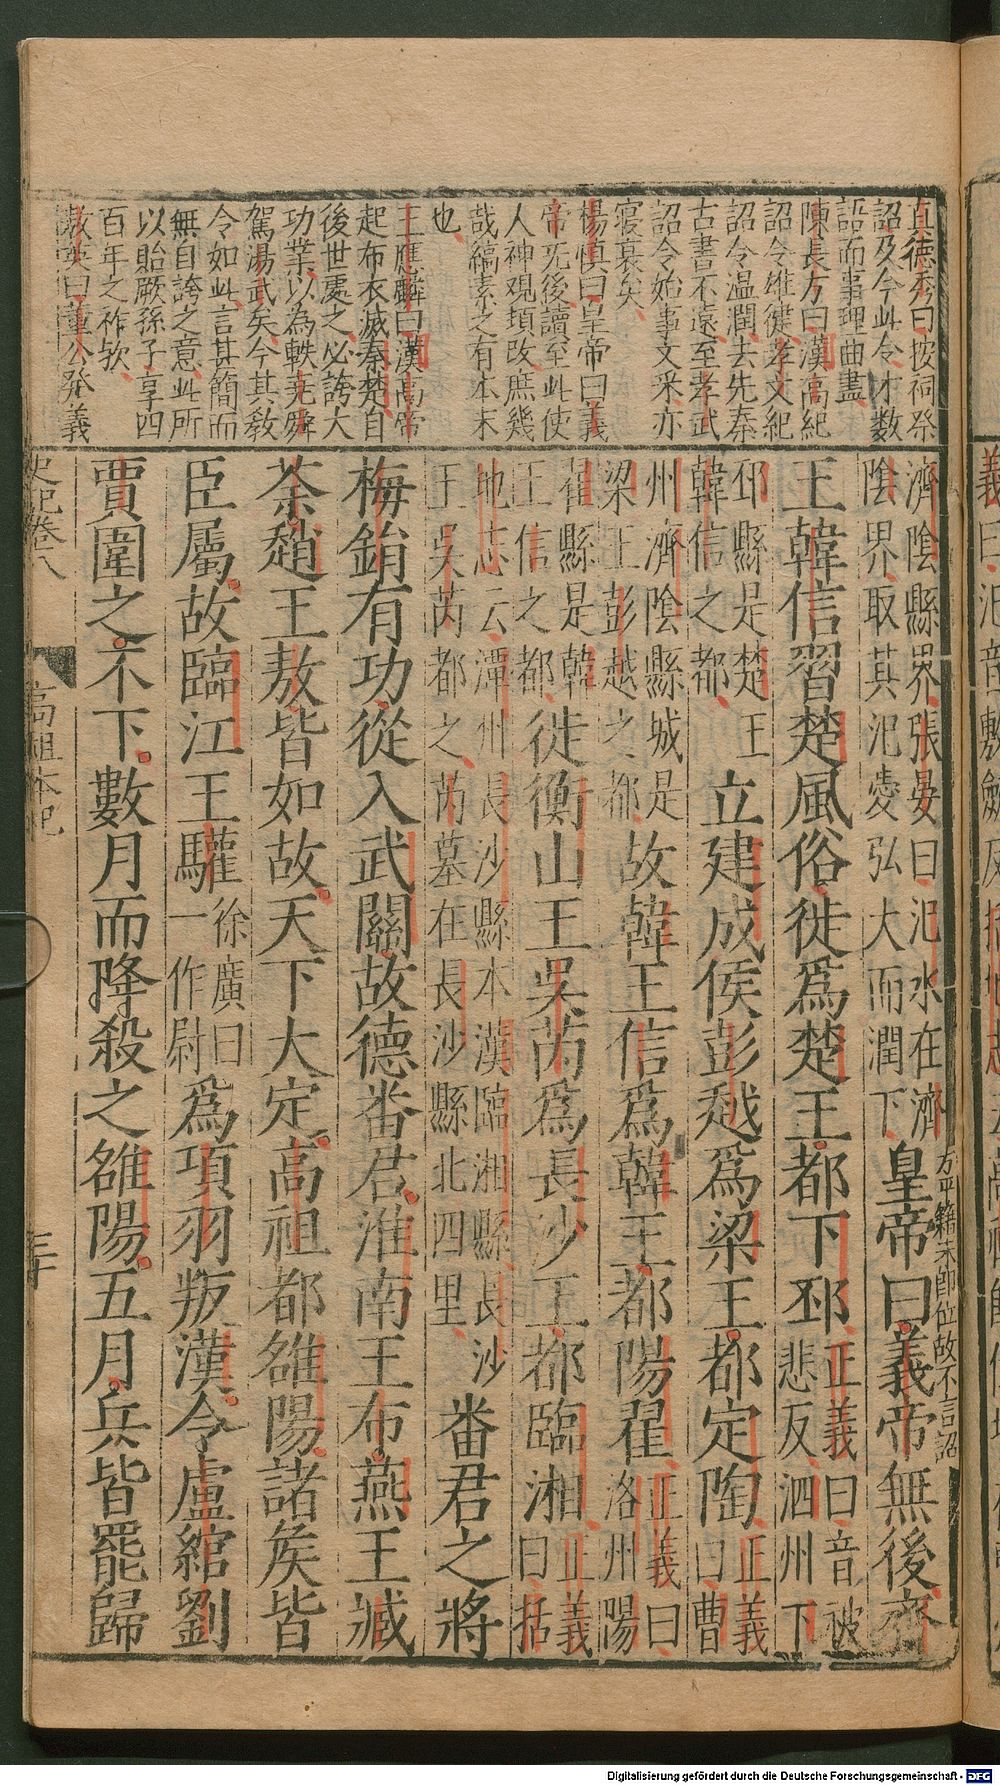 真德秀曰按祠祭
詔及今此令才數
語而事理曲盡
陳長方曰漢高紀
詔令雄健孝文紀
詔令温潤去先秦
古書不遠至孝武
詔令始事文采亦
寖衰矣
楊慎曰皇帝曰義
帝无後讀至此使
人神觀頃改庶幾
哉縞素之有本末
也
王應麟曰漢高帝
起布衣滅秦楚自
後世處之必誇大
功業以為軼堯舜
駕湯武矣今其敎
令如此言甚簡而
無自誇之意此所
以貽厥孫子享四
百年之祚欤
敖英曰董公發義
濟陰縣界張晏曰汜水在濟
陰界取其汜愛弘大而潤下
皇帝曰義帝無後齊
方平籍未卽位故不言詔
王韓信習楚風俗徙爲楚王都下邳
正義曰音被
悲反泗州下
邳縣是楚王
韓信之都
立建成侯彭越爲梁王都定陶
正義
曰曹
州濟陰縣城是
梁王彭越之都
故韓王信爲韓王都陽翟
正義曰
洛州陽
翟縣是韓
王信之都
徙衡山王吳芮爲長沙王都臨湘
正義
曰括
地志云潭州長沙縣本漢臨湘縣長沙
王吳芮都之芮墓在長沙縣北四里
番君之將
梅鋗有功從入武關故德番君淮南王布燕王臧
荼趙王敖皆如故天下大定高祖都雒陽諸矦皆
臣屬故臨江王驩
徐廣曰
一作尉
爲項羽叛漢令盧綰劉
賈圍之不下數月而降殺之雒陽五月兵皆罷歸
史記卷八
高祖本紀
三十
Digitalisierung gefördert durch die Deutsche Forschungsgemeinschaft - DFG